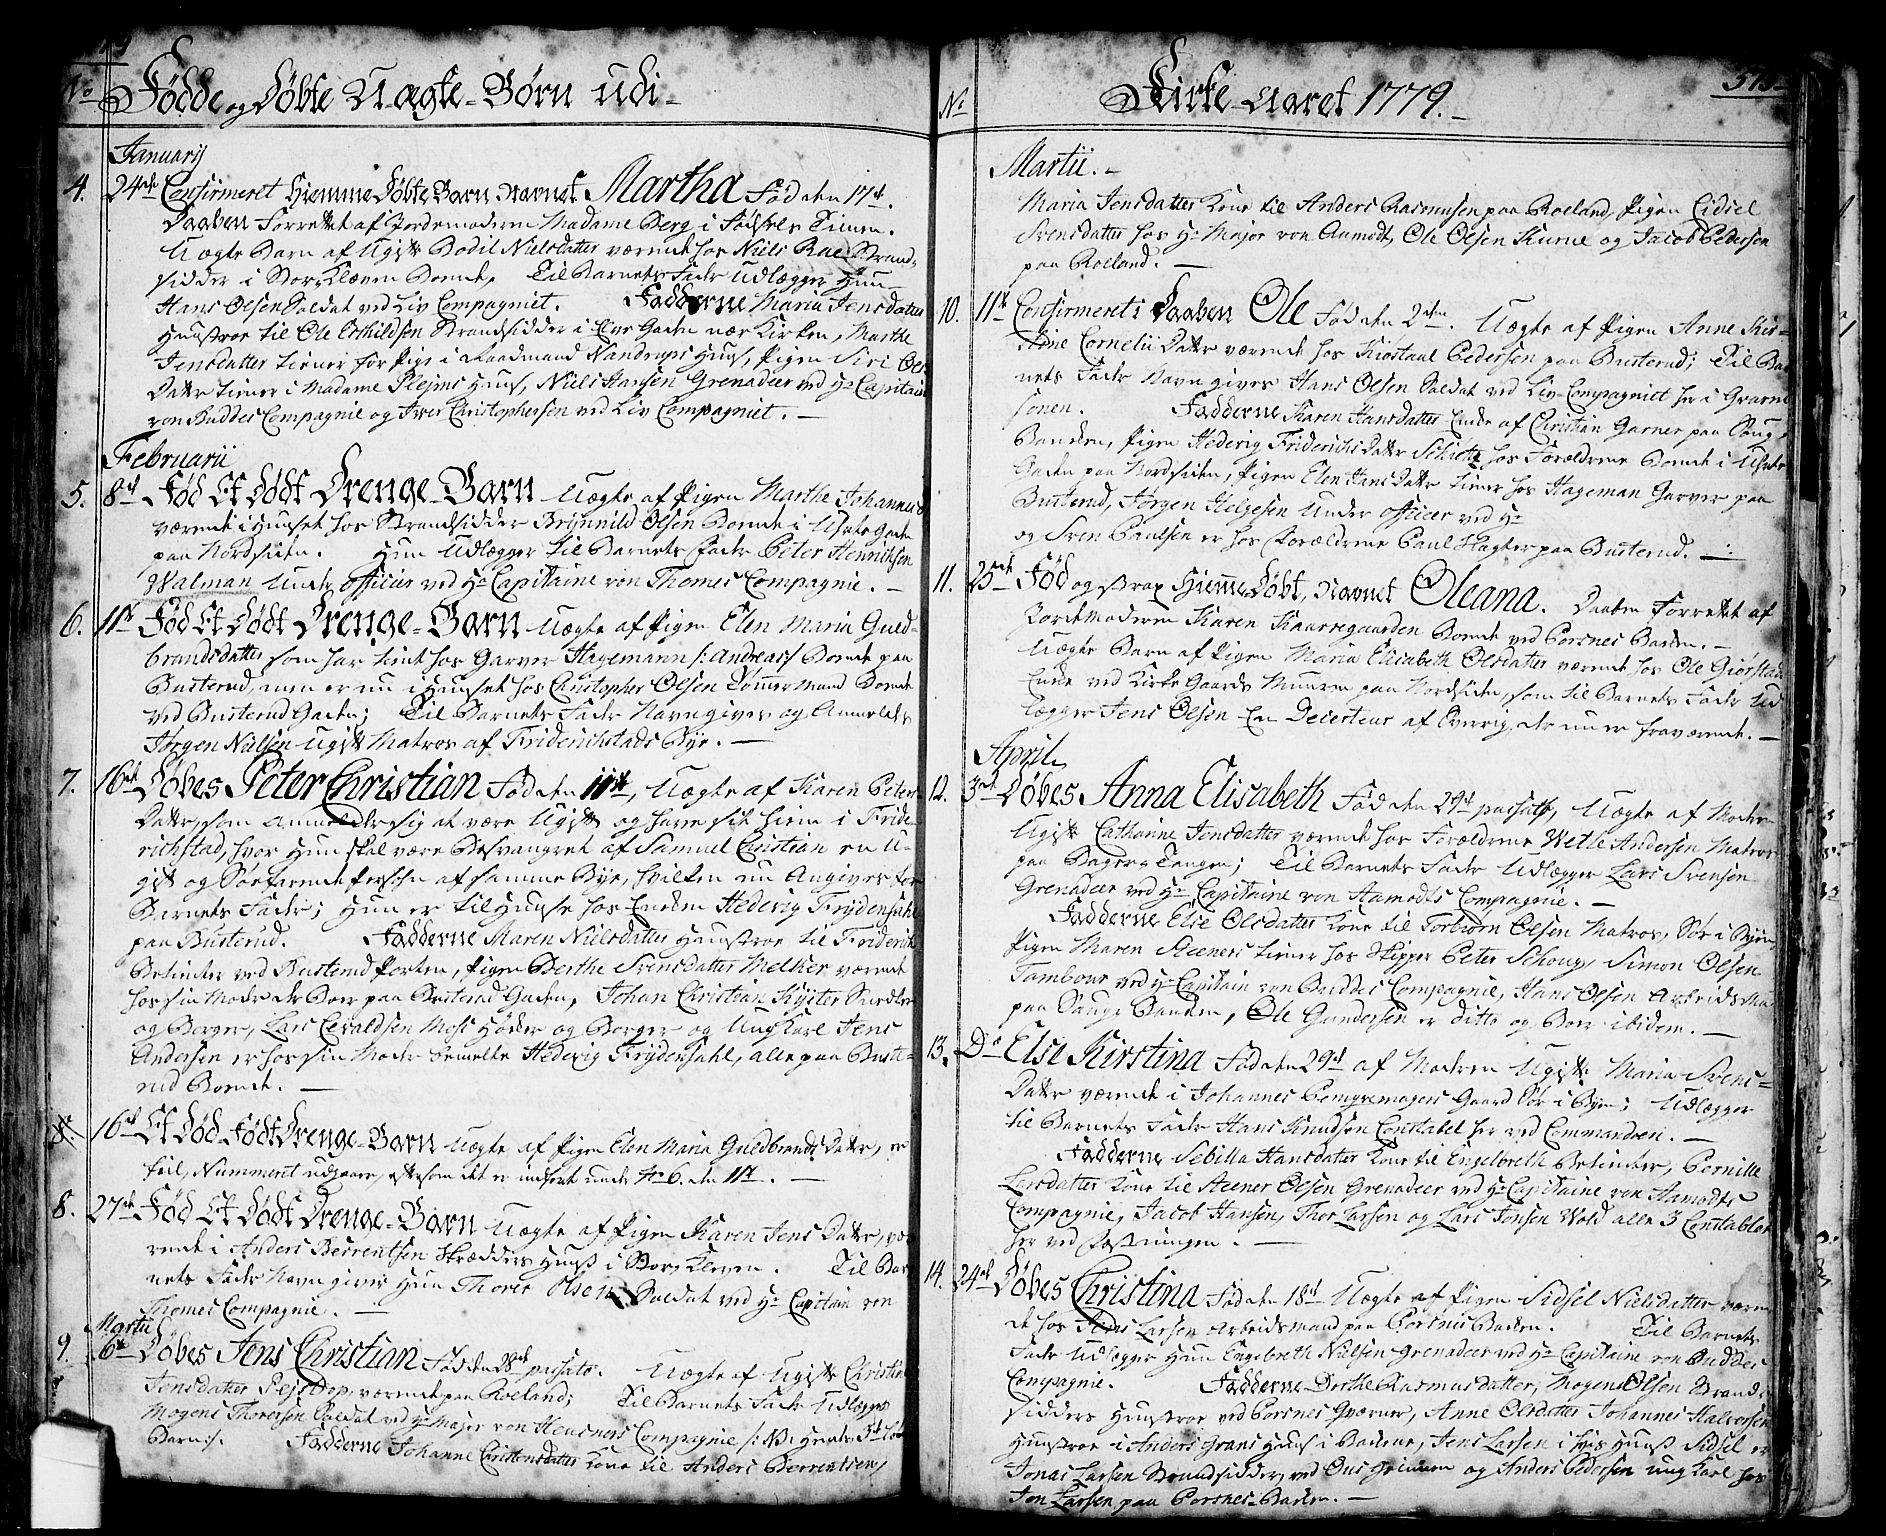 No Fødde og Døbte Uægte-Børn udi-
Januarij
4. 24de Confirmeret Hiemme Døbte Barn Navnet Martha Fød den 17d.
Daaben Forrettet af Jordemoderen Madame Berg i Fødsels Timen.
Uægte Barn af Ugift Bodil Nielsdatter værende hos Niels Rae Strand-
sidder i Stor Kleven Boende, Til Barnets Fader Udlægger Hun
Hans Olsen Soldat ved Liv Compagniet. Fadderne Maria Jensdatter
Hustroe til Ole Eskildsen Strandsidder i Gaden nær Kirken, Marthe
Jensdatter tiener for Pige i Raadmand Vandrups Huus, Pigen Siri Ols
Datter tiener i Madame Plejms Huus, Niels Hansen Grenadeer ved Hr Capitain
von Buddes Compagnie og Iver Christophersen ved Liv Compagniet. -
Februarii
5. 8d Fød Et Dødt Drenge-Barn Uægte af Pigen Marthe Johannes
værende i Huuset hos Strandsidder Brynnild Olsen Boende i Gaden
paa Nordsiden. Hun Udlægger til Barnets Fader Peter Henrichsen
Walman Under Officier ved Hr Capitaine von Thomes Compagnie. -
6. 11d Fød Et Dødt Drenge-Barn Uægte af Pigen Elen Maria Guld-
brandsdatter som har tient hos Garver Hagemann /: Andreas :/ Boende paa
Busterud, men er nu i Huuset hos Christopher Olsen Tømmermand Boende
ved Busterud Gaden; Til Barnets Fader Navngives og Anmeldes
Jørgen Nielsen Ugift Matros af Friderichstads Bye. -
7. 16de Døbes Peter Christian Fød den 11te, Uægte af Karen Peters-
Datter, som Anmelder sig at være Ugift og have sit hiem i Fride-
richstad, hvor Hun skal være Besvangret af Samuel Christian en U-
gift og Søefarende Person af samme Bye, hvilken nu Angives for
Barnets Fader; Hun er til Huuse hos Enken Hedevig Frydensahl
paa Busterud. Fadderne Maren Nielsdatter Hustroe til Friderich
Betienter ved Busterud Porten, Pigen Berthe Svensdatter Melker værende
hos sin Moder der Boer paa Busterud Gaden, Johan Christian Kyster Snedker
og Borger, Lars Evaldsen Moss Høker og Borger og Ung Karl Jens
Andersen er hos sin Moder bemelte Hedevig Frydensahl, alle paa Buste-
rud Boende. -
8. 16d Et Død Født Drenge-Barn Uægte af Pigen Elen Maria Guldbrands Datter, er
feil, Nummeret udgaaer, eftersom det er indført under No 6. den 11te. -
8. 27de Fød Et Dødt Drenge-Barn Uægte af Pigen Karen Jens Datter, væ-
rende i Anders Berrentsen Skrædders Huus i Stor Kleven. Til Bar-
nets Fader Navngiver Hun Thorer Olsen Soldat ved Hr Capitain von
Thomes Compagnie. -
Martii
9. 6te Døbes Jens Christian Fød den 28de passato. Uægte af Ugift Christine
Jensdatter værende paa Roeland; Til Barnets Fader Udlægges
Mogens Thoresen Soldat ved Hr Major von Heusners Compagnie /: NB: Hendes 3die
Barn :/. Fadderne Johanne Christensdatter Kone til Anders Berrentsen,
No Kirke-Aaret 1779. -
Martii. -
Maria Jensdatter Kone til Anders Rasmusen paa Roeland, Pigen Eidsel
Svensdatter hos Hr Major von Aamodt, Ole Olsen Kurne og Jacob Pedersen
paa Roeland. -
10. 11te Confirmeret i Daaben Ole Fød den 2den. Uægte af Pigen Anne Kir-
stine Cornelii Datter værende hos Kiostaul Pedersen paa Busterud; Til Bar
nets Fader Navngives Hans Olsen Soldat ved Liv-Compagniet her i Guarni
sonen. Fadderne Karen Hansdatter Enke af Christian Garner paa Saug-
Banken, Pigen Hedevig Friderichs Datter Schiøtz hos Forældrene Boende i
Gaden paa Nordsiden, Pigen Elen Hans Datter tiener hos Hageman Garver paa
Busterud, Jørgen Helgesen Under Officeer ved Hr
og Sven Paulsen er hos Forældrene Paul Hagter paa Busterud. -
11. 25de Fød og strax Hjemme Døbt, Navnet Oleana. Daaben Forrettet af
Jordemoderen Karen Kaarregaarden Boende ved Porsnes Bakken. -
Uægte Barn af Pigen Maria Elisabeth Olsdatter værende hos Ole Giørstad
Ende ved Kirke Gaards Muuren paa Nordsiden, som til Barnets Fader Ud
lægger Jens Olsen En Deserteur af Sverrig, der nu er fraværende. -
April
12. 3de Døbes Anna Elisabeth Fød den 29d passato, Uægte af Moder
Ugift Catharine Jensdatter værende hos Forældrene Wetle Andersen Matros
paa Bagero Tangen; Til Barnets Fader Udlægger Lars Svensen
Grenadeer ved Hr Capitaine von Aamodts Compagnie. -
Fadderne Else Olsdatter Kone til Torbiørn Olsen Matros, Sør i Byen,
Pigen Maren Steeners tiener hos Skipper Peter Schong, Simon Olsen
Tambour ved Hr Capitain von Buddes Compagnie, Hans Olsen Arbeids Ma
paa Sauge Banken, Ole Gundersen er ditto og Boer ibidem. -
13. Do Else Kirstina Fød den 29d af Moderen Ugift Maria Svens-
Datter værende i Johannes Pemgremagers Gaard Sør i Byen; Udlægger
til Barnets Fader Hans Knudsen Constabel her ved Commandoen. -
Fadderne Sebilla Hansdatter Kone til Engelbreth Betienter, Pernille
Larsdatter Kone til Steener Olsen Grenadeer ved Hr Capitaine von Aamodts
Compagnie, Jacob Hansen, Thor Larsen og Lars Jonsen Wold alle 3 Constabler
her ved Fæstningen. -
14. 24de Døbes Christina Fød den 18d Uægte af Pigen Sidsel Nielsdatter væren
de hos Jens Larsen Arbeidsmand paa Porsnes Bakken. Til Barnets
Fader Udlægger Hun Engebreth Nielsen Grenadeer ved Hr Capitaine von Buddes
Compagnie. Fadderne Dorthe Rasmusdatter, Mogens Olsen Strand-
sidders Hustroe ved Porsnes Qværner, Anne Olsdatter Johannes Halvorsen
Hustroe i Anders Grans Huus i Bakken, Jens Larsen i hvis Huus Sidsel er
Jonas Larsen Strandsidder ved og Anders Pedersen ung Karl hos
Jon Larsen paa Porsnes-Bakken. -